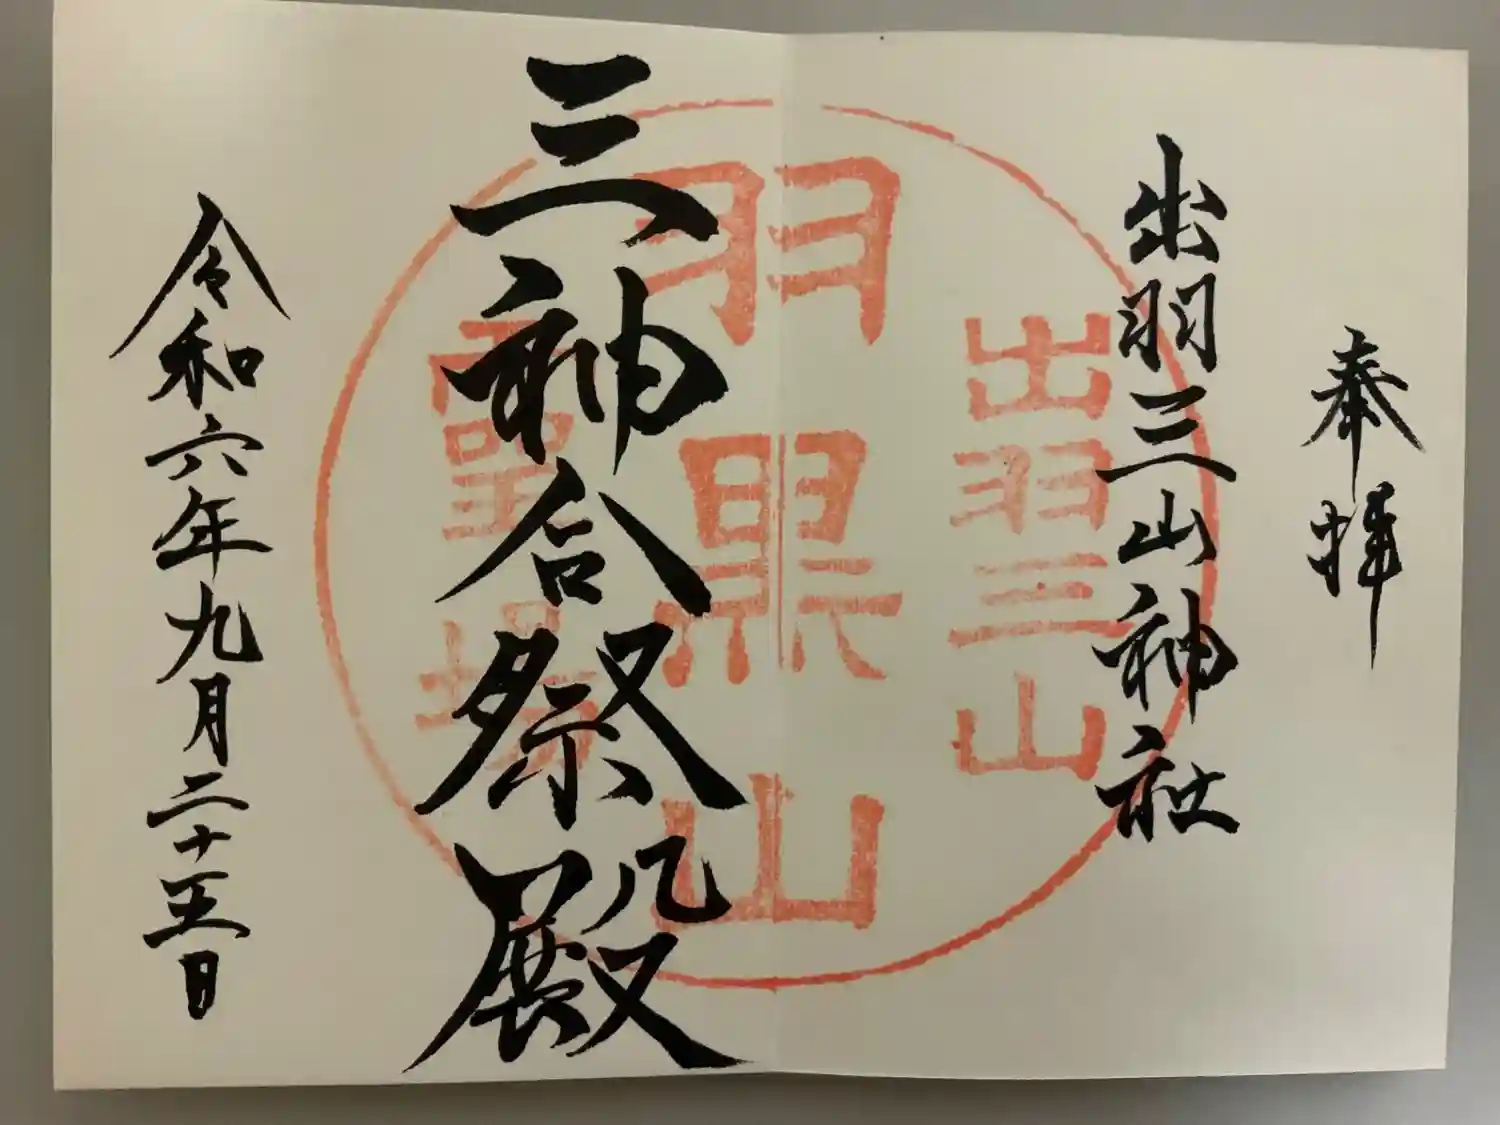 奉拝
出羽三山神社
三神合祭殿
令和六年九月二十五日
出羽三山
羽黒山
霊場